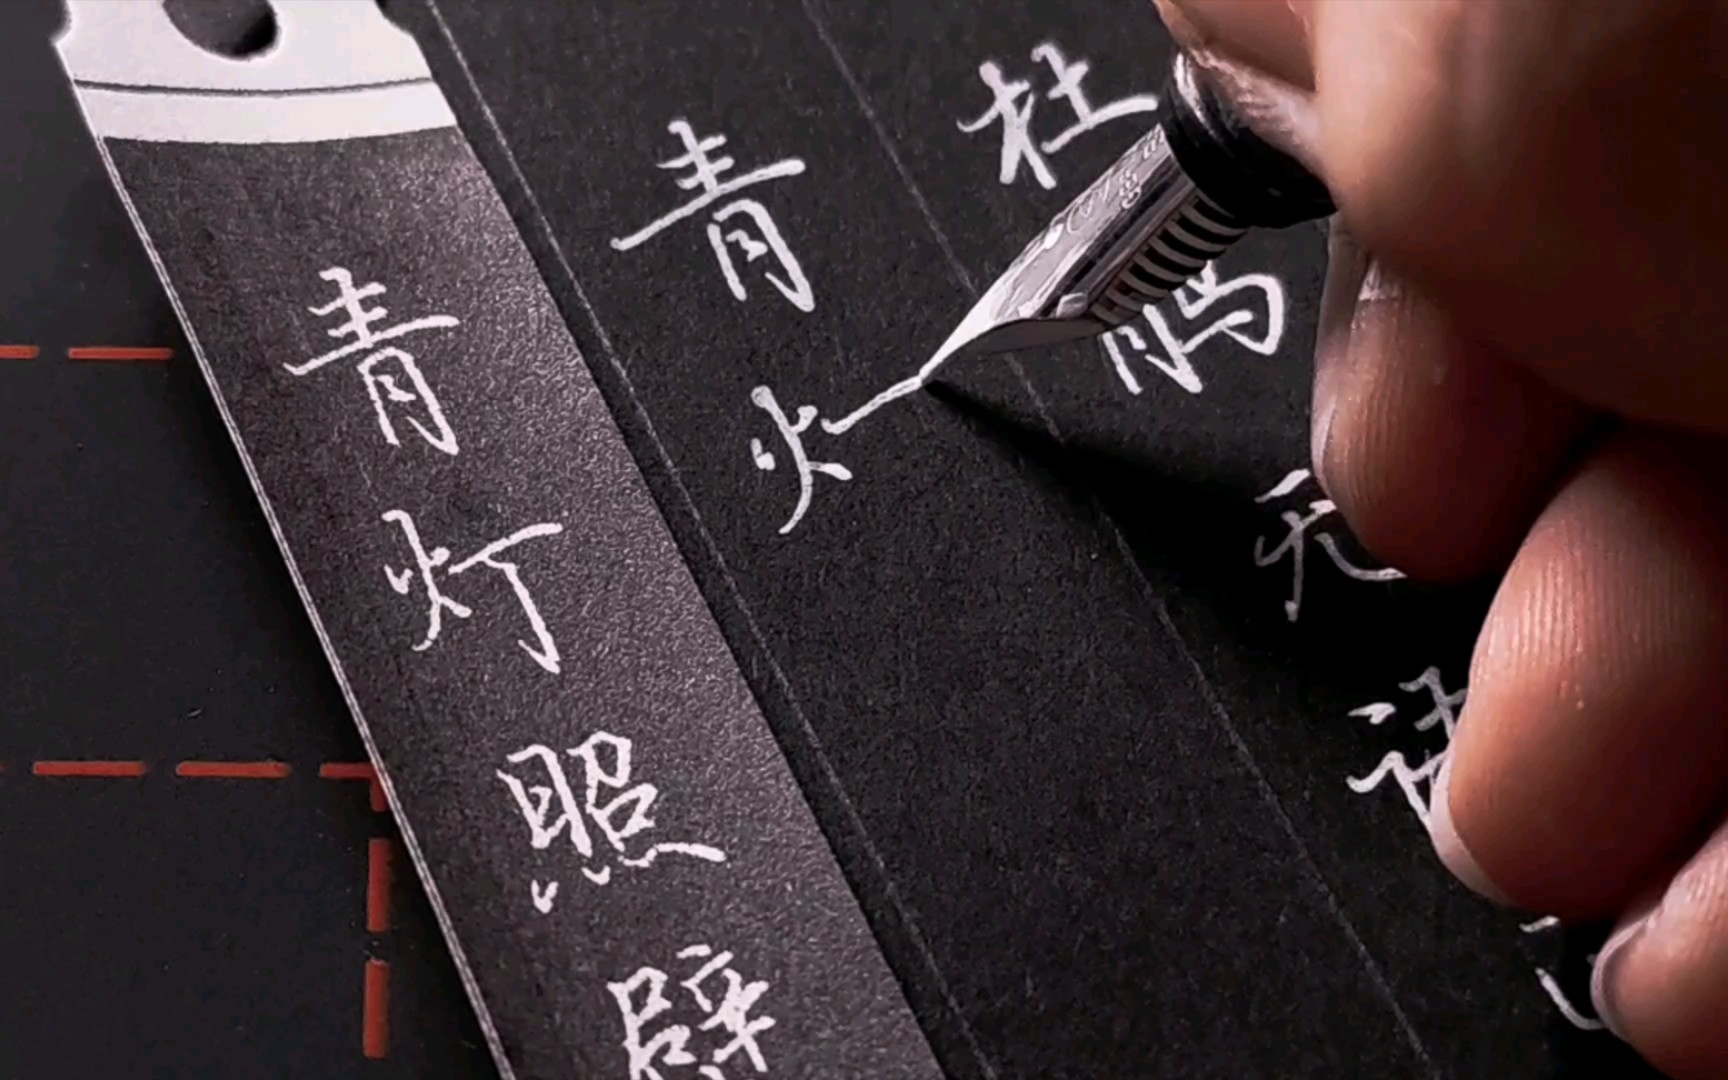 杜鹃无
青火
青灯照壁